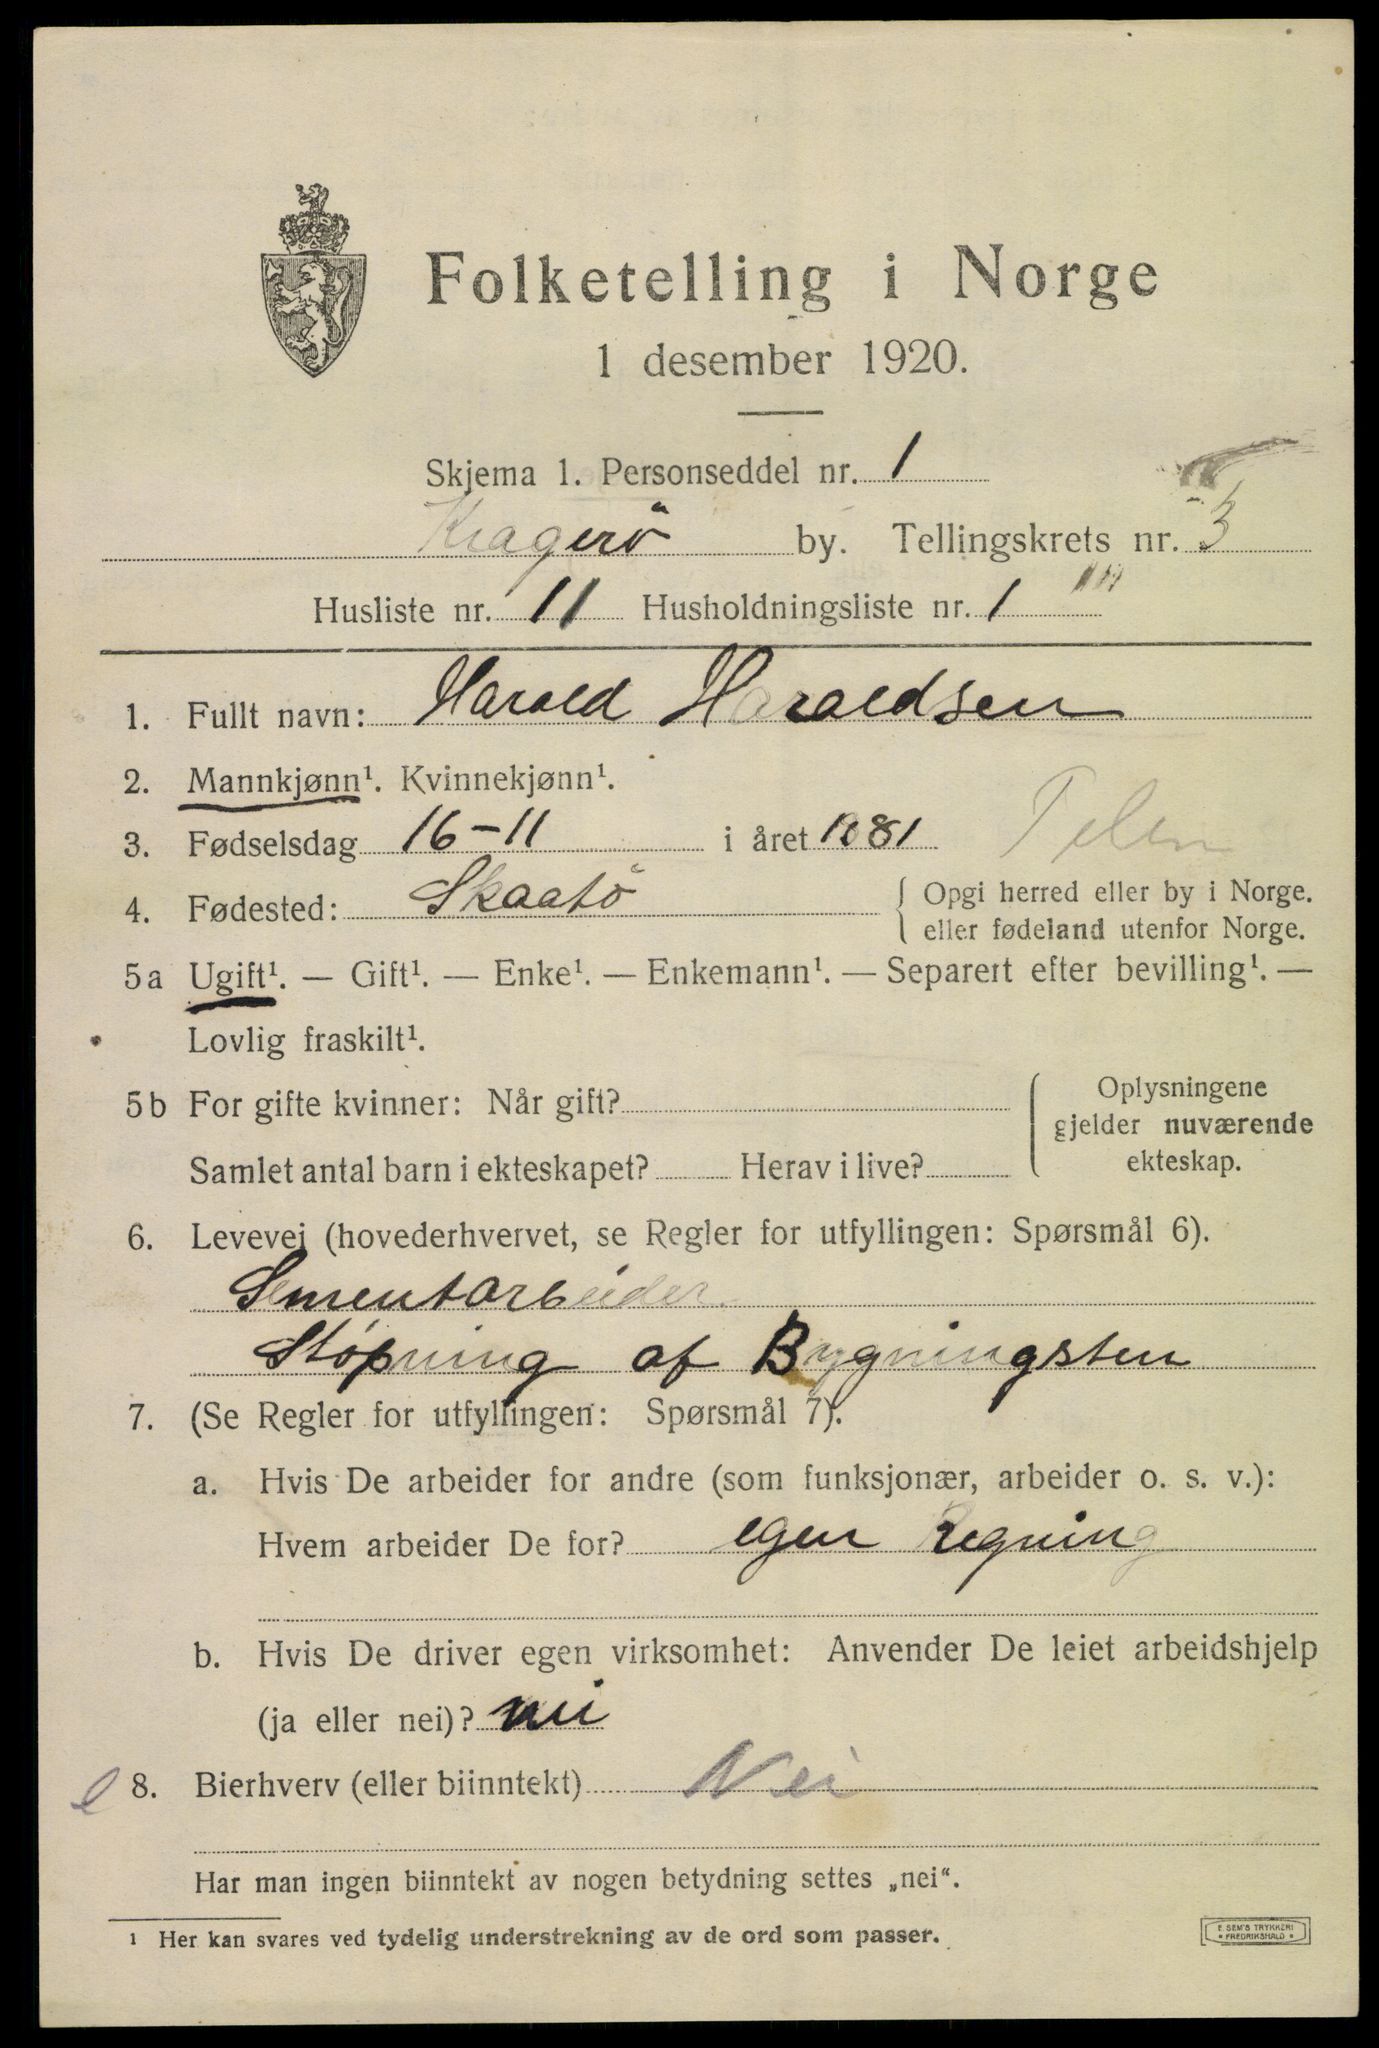 Folketelling i Norge
1 desember 1920.
Skjema 1. Personseddel nr. 1
Kragerö by. Tellingskrets nr. 3
Husliste nr. 11 Husholdningsliste nr. 1
1. Fullt navn: Harald Haraldsen
2. Mannkjønn¹. Kvinnekjønn¹.
3. Fødselsdag 16-11 i året 1881
4. Fødested: Skaatö { Opgi herred eller by i Norge.
eller fødeland utenfor Norge.
5a Ugift¹. — Gift¹. — Enke¹. — Enkemann¹. — Separert efter bevilling¹. —
Lovlig fraskilt¹.
5b For gifte kvinner: Når gift? { Oplysningene
gjelder nuværende
ekteskap.
Samlet antal barn i ekteskapet? Herav i live?
6. Levevei (hovederhvervet, se Regler for utfyllingen: Spørsmål 6).
Sementarbeider
Støpning af Bygningsten
7. (Se Regler for utfyllingen: Spørsmål 7).
a. Hvis De arbeider for andre (som funksjonær, arbeider o. s. v.):
Hvem arbeider De for? egen Regning
b. Hvis De driver egen virksomhet: Anvender De leiet arbeidshjelp
(ja eller nei)? nei
8. Bierhverv (eller biinntekt) Nei
Har man ingen biinntekt av nogen betydning settes „nei“.
¹ Her kan svares ved tydelig understrekning av de ord som passer.
E. SEM'S TRYKKERI
• FREDRIKSHALD •